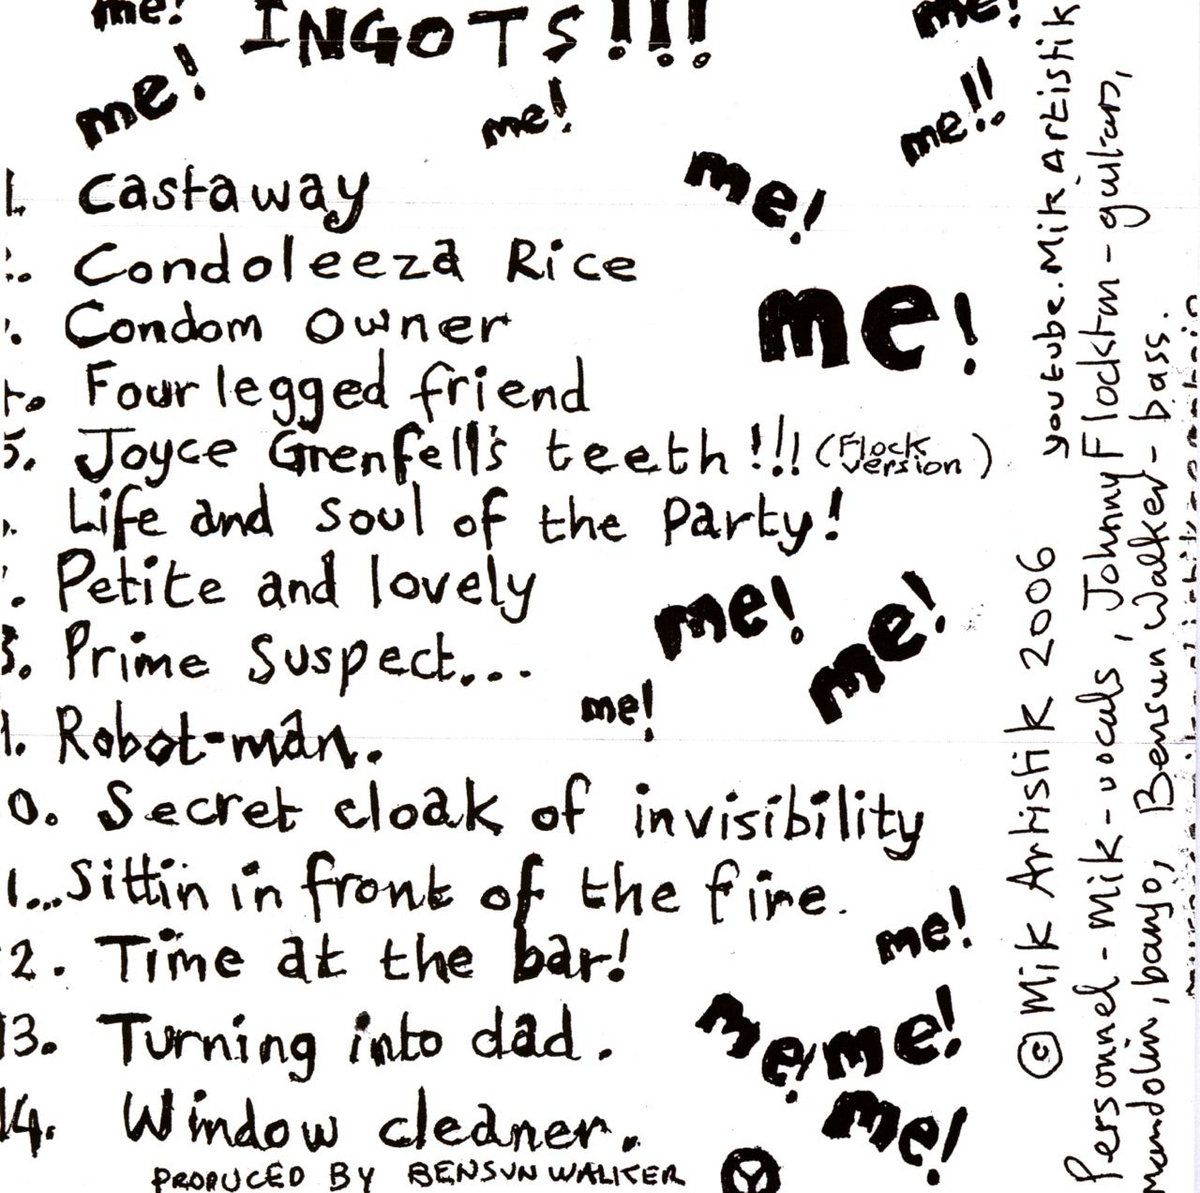 me!
INGOTS!!!
me!
me!
me!
me!!
me!
1. Castaway
Condoleeza Rice
me!
Condom owner
Four legged friend
5. Joyce Grenfell's teeth!!! (Flock version)
Life and soul of the Party!
Petite and lovely
me!
me!
Prime Suspect...
me!
Robot-man.
0. Secret cloak of invisibility
1...Sittin in front of the fire.
me!
2. Time at the bar!
me!
me!
13. Turning into dad.
me!
14. Window cleaner.
PRODUCED BY BENSUN WALKER
© Mik Artistik 2006 youtube.Mik Artistik
Personnel - Mik - vocals, Johnny Flockton - guitars,
mandolin, banjo, Bensun Walker - bass.